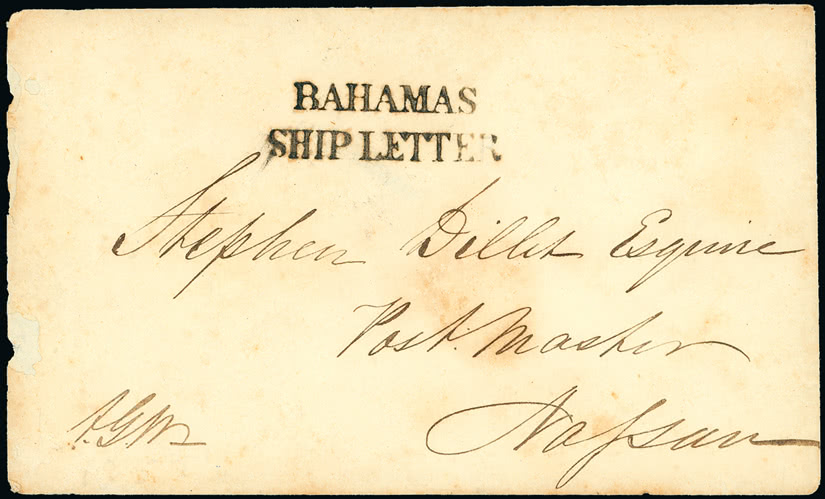 BAHAMAS
SHIP LETTER
Stephen Dillet Esquire
Post Master
Nassau